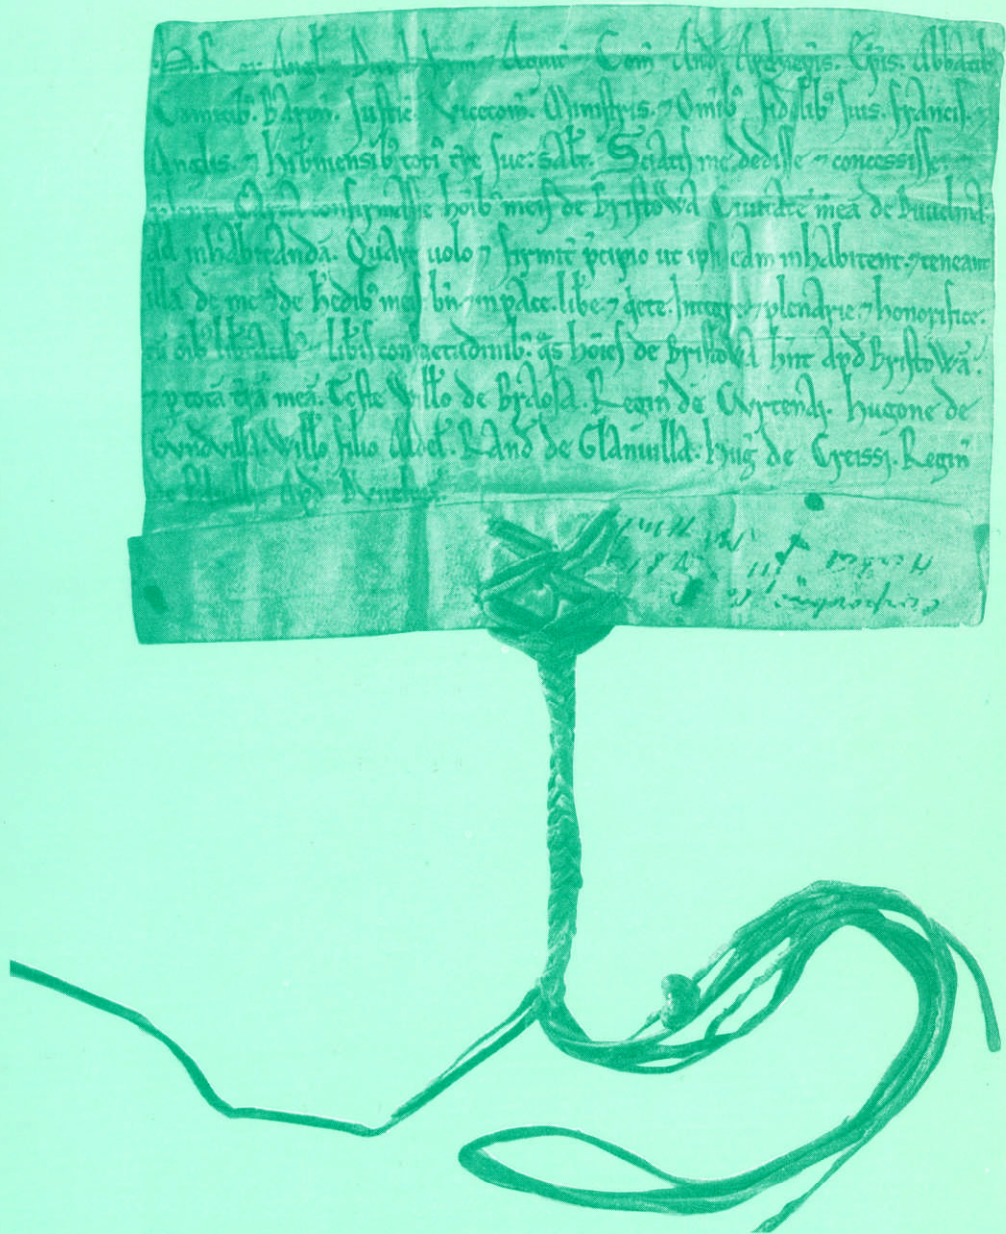 H. Rex Angl. Dux Norm. Aquit. Com And. Archiepis. Epis. Abbatib
Comitib. Baron. Justic. Vicecom. Ministris. ⁊ Omib fidelib suis. francis. ⁊
Anglis. ⁊ hibniensib toti tre sue: Salt. Sciatis me dedisse ⁊ concessisse ⁊
Carta confirmasse hoib meis de Bristowa Civitate meā de Duvelina
ad inhabitandā. Quare uolo ⁊ firmit pcipio ut ipsi eam inhabitent. ⁊ teneant
illā de me ⁊ de hedib meis bn ⁊ in pace. libe ⁊ qete. Integre ⁊ plenarie ⁊ honorifice.
cū oib libtatib ⁊ libis consuetudinib. qs hoies de Bristowa hnt Apd Bristowā.
⁊ p totā trā meā. Teste Willo de Braosa. Regin de Curtenai. hugone de
Gundvilla. Willo filio Aldel. Rand de Glanuilla. hug de Creissi. Regin
Apd